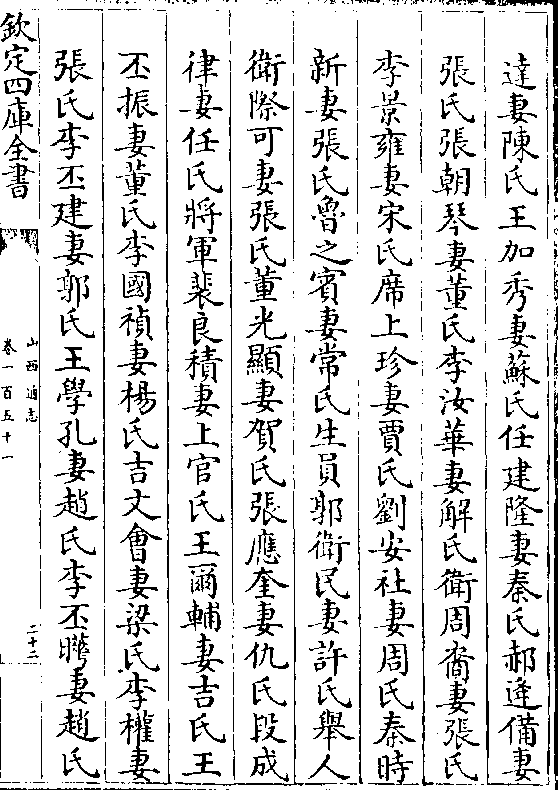 達妻陳氏王加秀妻蘇氏任建隆妻秦氏郝逄備妻
張氏張朝琴妻董氏李汝華妻解氏衛周裔妻張氏
李景雍妻宋氏席上珍妻賈氏劉安社妻周氏秦時
新妻張氏魯之賓妻常氏生員郭衛民妻許氏舉人
衛際可妻張氏董光顯妻賀氏張應奎妻仇氏段成
律妻任氏將軍裴良積妻上官氏王爾輔妻吉氏王
丕振妻董氏李國禎妻楊氏吉文會妻梁氏李權妻
張氏李丕建妻郭氏王學孔妻趙氏李丕疇妻趙氏
欽定四庫全書
山西通志
卷一百五十一
二十二